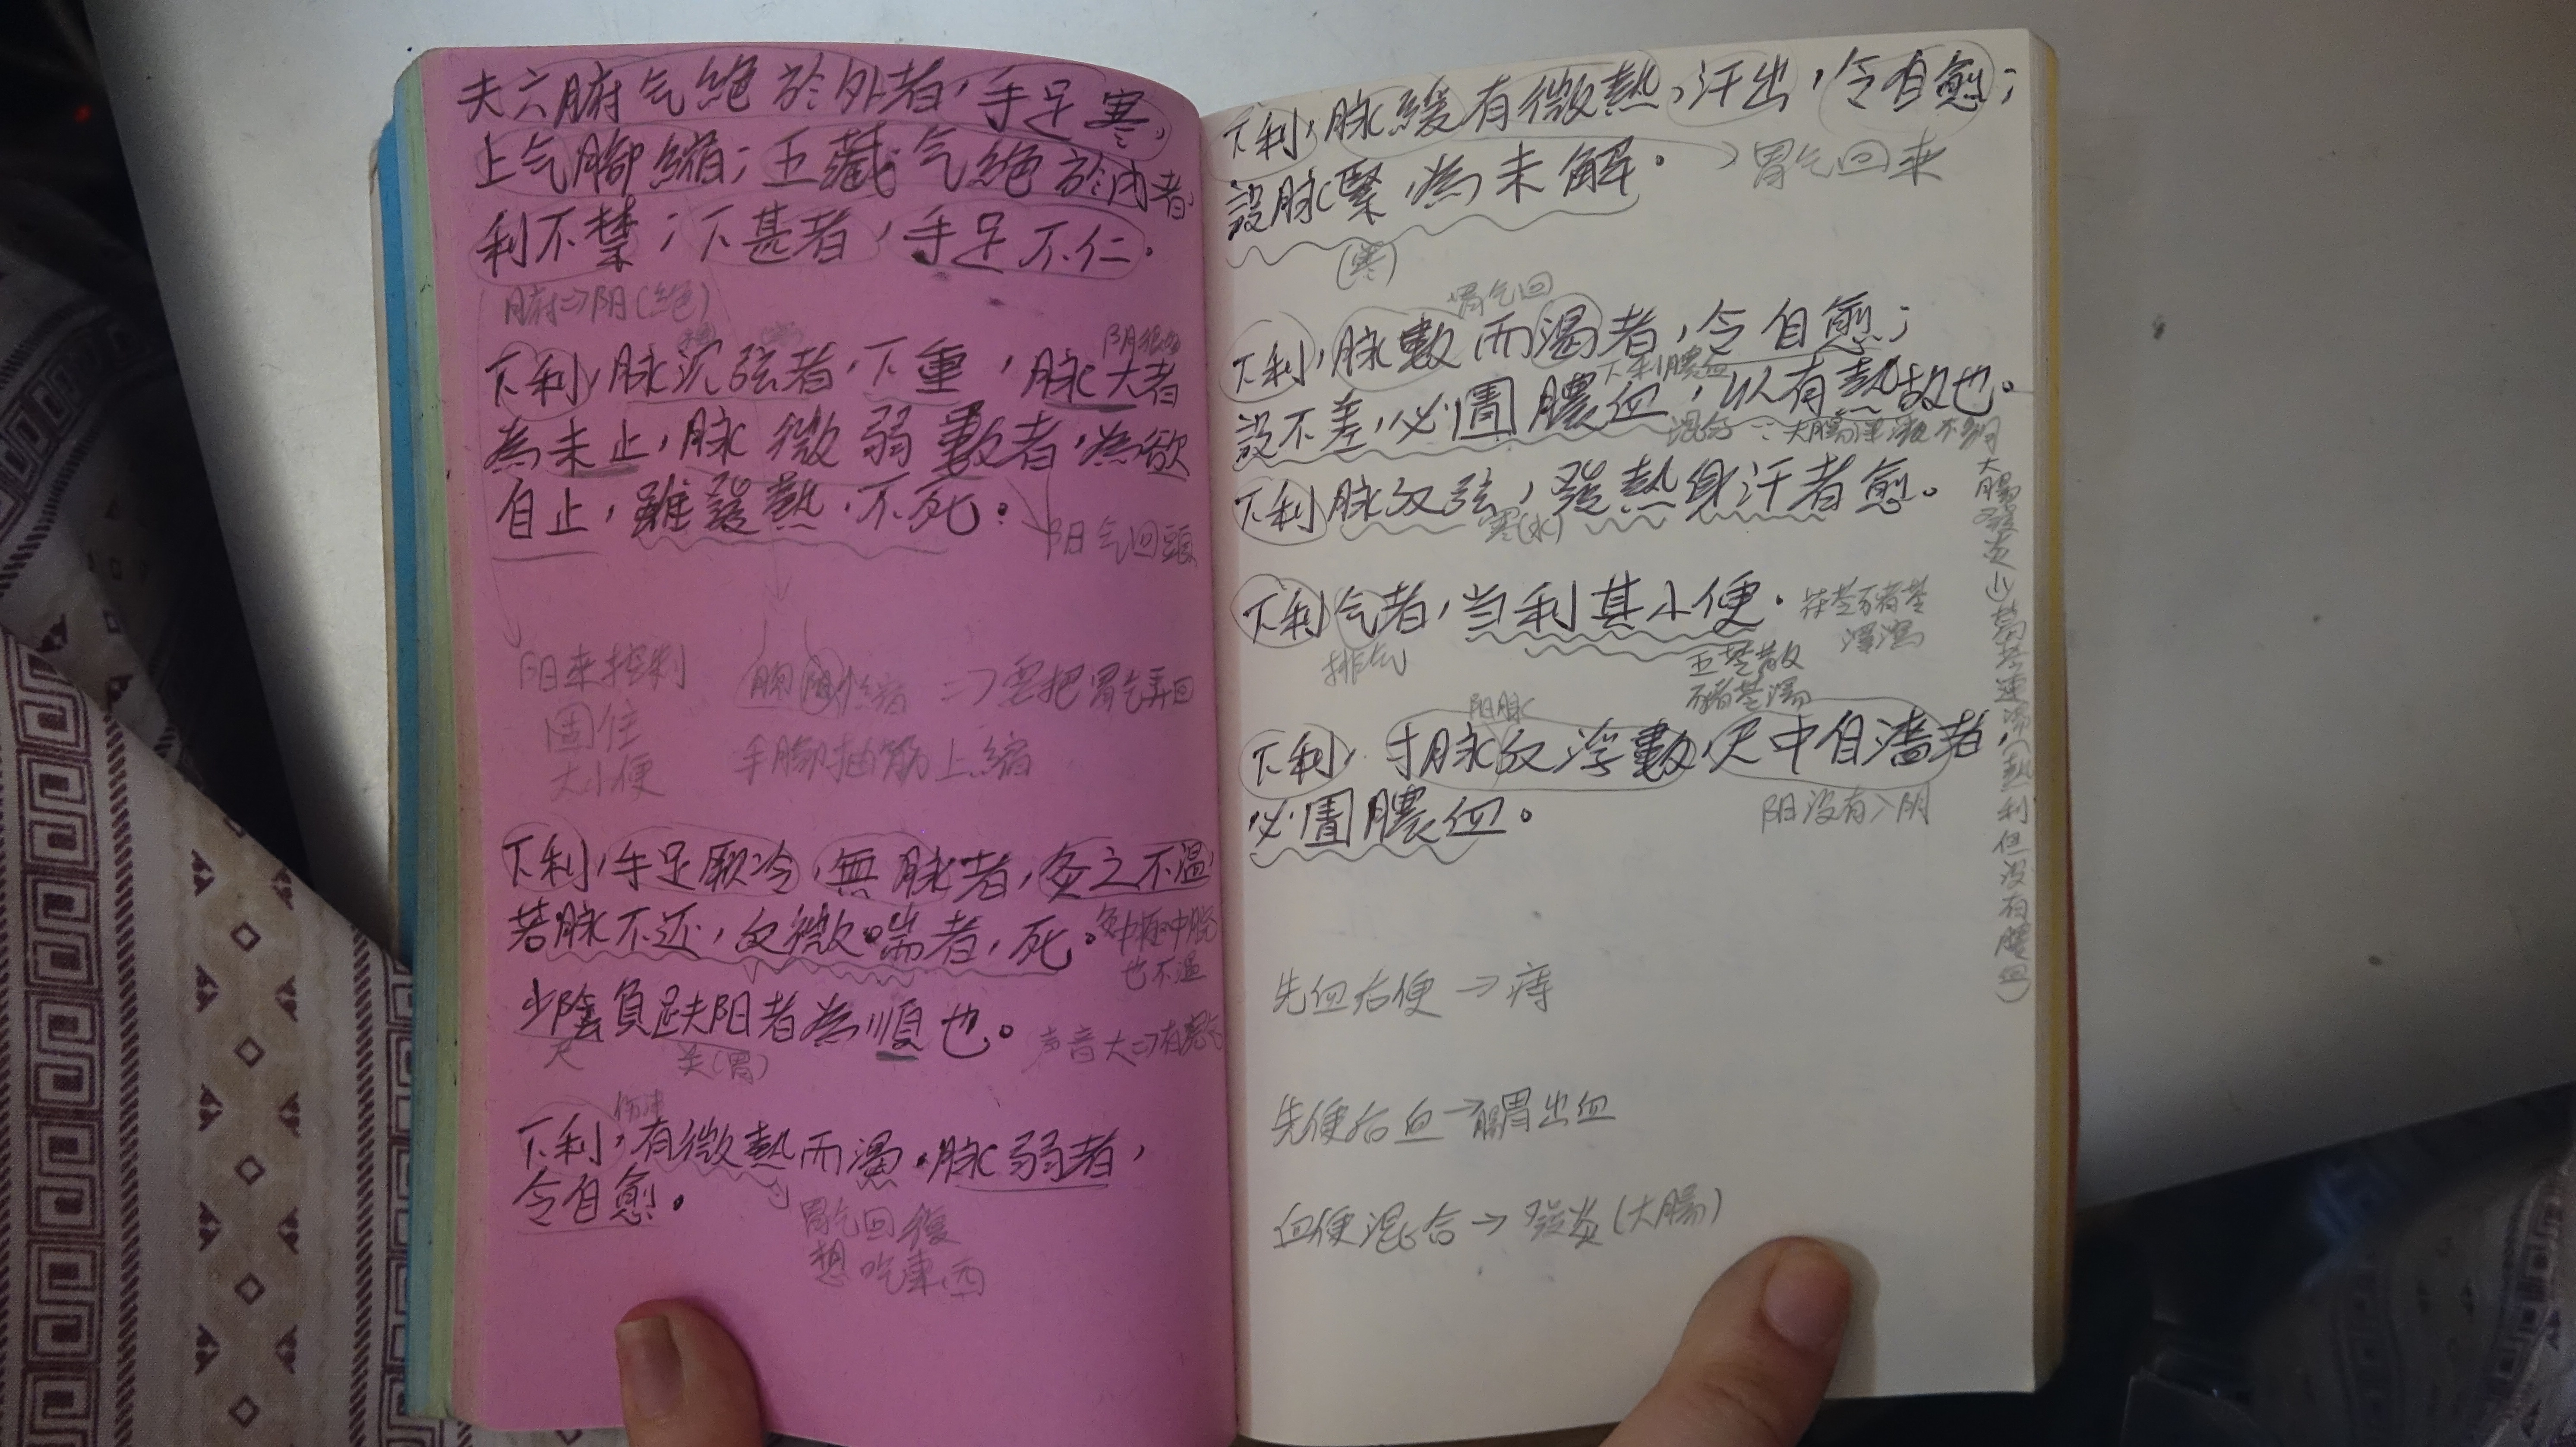 夫六腑气絶於外者，手足寒，
上气脚縮；五藏气絶於内者，
利不禁；下甚者，手足不仁。
腑⇒阴(絶)
下利，脉沉弦者，下重，脉大者
為未止，脉微弱數者，為欲
自止，雖發熱，不死。
阳气回頭
阳来控制
固住
大小便
⇒要把胃气弄回
手脚抽筋上縮
下利，手足厥冷，無脉者，灸之不温，
若脉不还，反微喘者，死。
也不温
少陰負趺阳者為順也。
尺
关(胃)
声音大⇒有
下利，有微熱而渴，脉弱者，
令自愈。
胃气回復
想吃東西
下利，脉緩有微熱，汗出，令自愈；
設脉緊，為未解。
→胃气回来
(寒)
胃气回
下利，脉數而渴者，令自愈；
下利膿血
設不差，必圊膿血，以有熱故也。
混合∵大腸津液不夠
下利脉反弦，發熱身汗者愈。
寒(水)
下利气者，当利其小便。
茯苓豬苓
澤瀉
排气
五苓散
豬苓湯
阳脉
下利，寸脉反浮數，尺中自濇者，
必圊膿血。
阳没有入阴
大腸發炎
葛芩連湯(熱利但没有膿血)
先血后便→痔
先便后血→腸胃出血
血便混合→發炎(大腸)